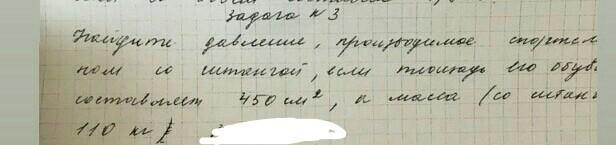 Задача №3
Найдите давление, производимое спортсме
ном со штангой, если площадь его обув
составляет 450 см², а масса (со штан
110 кг